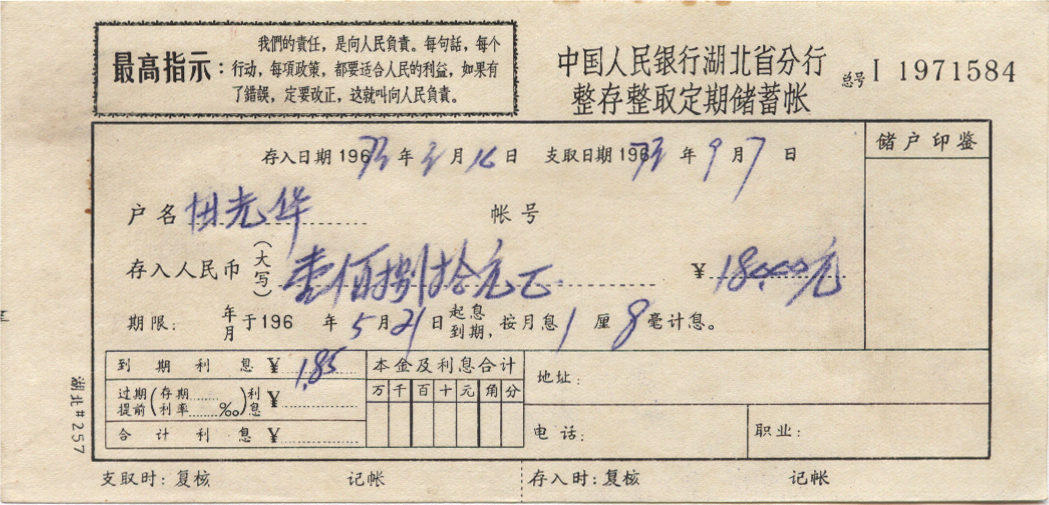 最高指示：
我們的責任，是向人民負責。每句話，每个
行动，每項政策，都要适合人民的利益，如果有
了錯誤，定要改正，这就叫向人民負責。
中国人民银行湖北省分行
整存整取定期储蓄帐
总号 I 1971584
存入日期196 年 月16日 支取日期196 年9月7日
储户印鉴
户名 田光华 帐号
存入人民币(大写) 壹佰捌拾元正 ¥180.00元
期限： 年月 于196 年5月21日 起息到期，按月息1厘8毫计息。
到期利息¥1.85
过期提前(存期......利率......‰)利息¥
合计利息¥
本金及利息合计
万 千 百 十 元 角 分
地址：
电话：
职业：
支取时：复核 记帐
存入时：复核 记帐
湖北#257